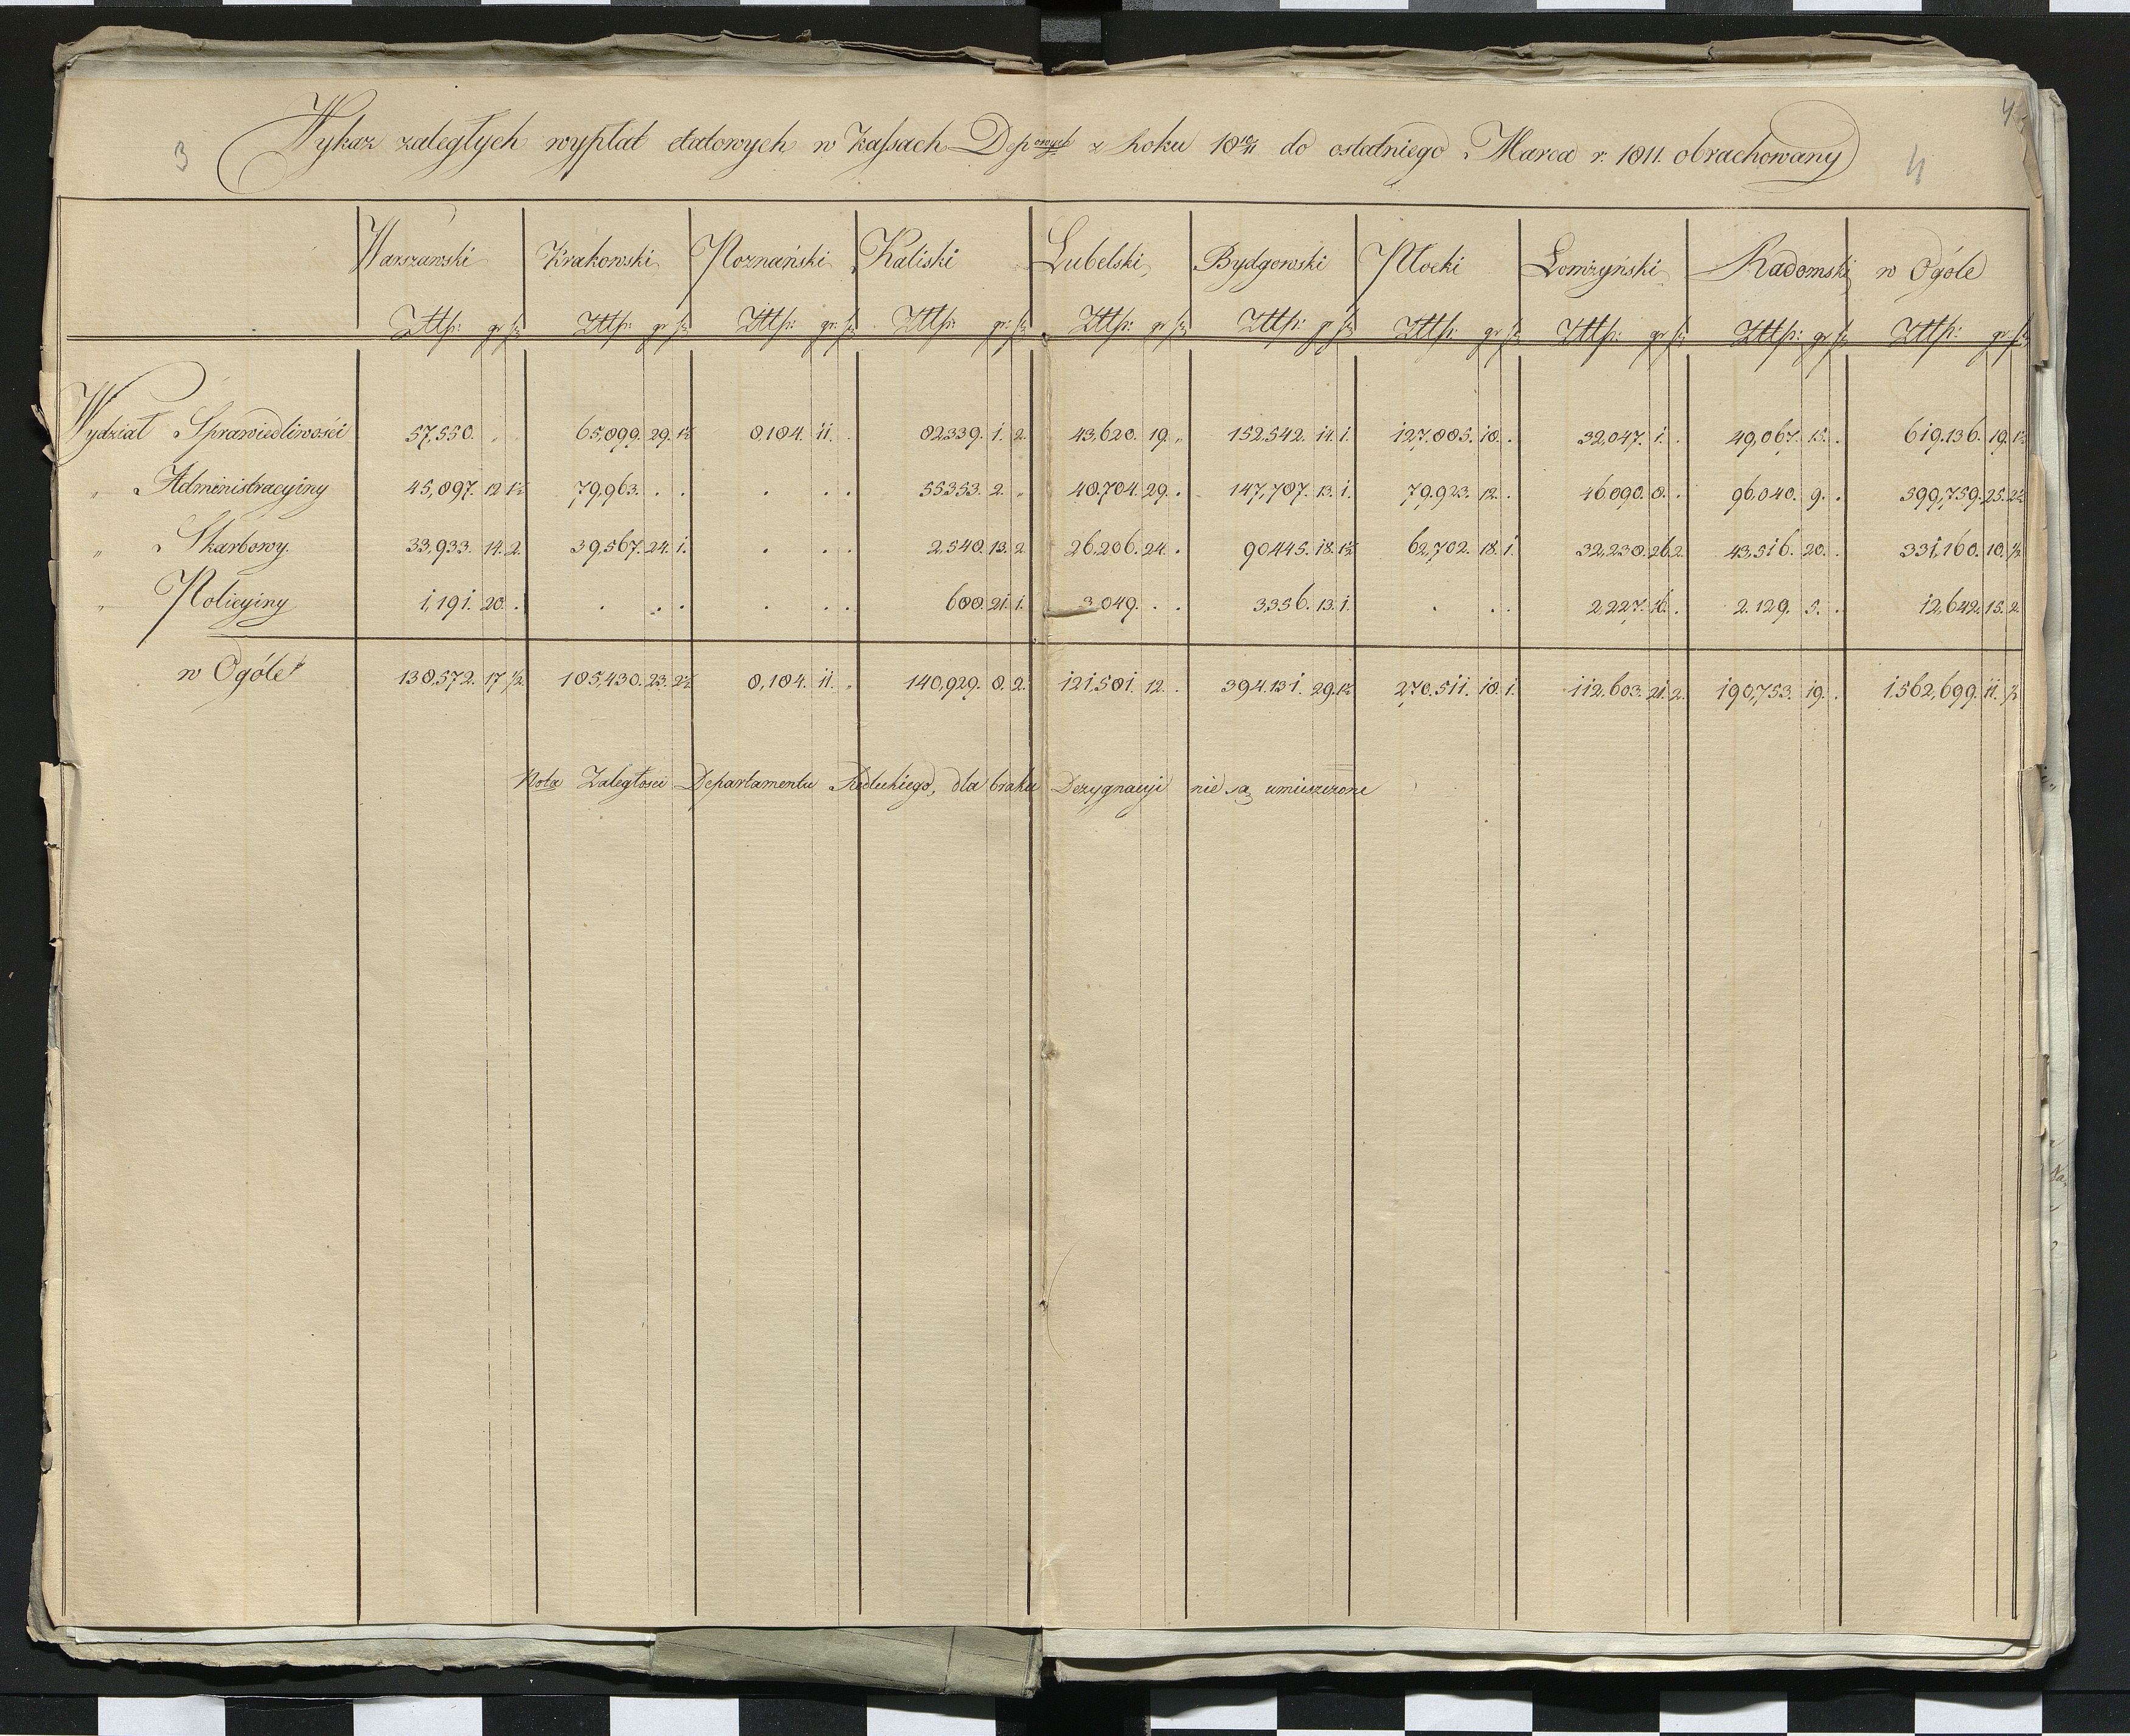 3
4
4
Wykaz zaległych wypłat etatowych w Kassach Depowych z Roku 18 10/11 do ostatniego Marca r. 1811. obrachowany
Warszawski Krakowski Poznański Kaliski Lubelski Bydgowski Płocki Łomżyński Radomski w Ogóle
Złłp: gr sz Złłp: gr sz Złłp: gr: sz Złłp: gr: sz Złłp: gr sz Złłp: gr sz Złłp: gr sz Złłp: gr sz Złłp: gr sz Złłp: gr sz
Wydział Sprawiedliwości 57,550. „ 65,899. 29. 1½ 8,184. 11. . 82339. 1. 2. 43,620. 19. „ 152.542. 14. 1. 127.885. 18. . 32,047. 1. . 49,067. 15. . 619.136. 19. 1½
„ Administracyjny 45,897. 12 1½ 79,963. . . . . . 55353. 2. „ 48,704. 29. . 147,787. 13. 1. 79.923. 12. . 46.090. 8. . 96.040. 9. . 599,759. 25. 2½
„ Skarbowy. 33,933. 14. 2. 39,567. 24. 1. . . . 2.548. 13. 2. 26,206. 24. . 90445. 18. 1½ 62,702. 18. 1. 32,238. 26. 2. 43,516. 20. . 331,160. 10. ½
„ Policyiny 1,191. 20. . . . . . . . 688. 21. 1. 3,049. . . 3356. 13. 1. . . . 2.227. 16. . 2.129. 5. . 12,642. 15. 2.
w Ogóle 138,572. 17 ½ 185,430. 23. 2½ 8,184. 11. „ 140,929. 8. 2. 121,581. 12. . 394.131. 29. 1½ 270.511. 18. 1. 112.603. 21. 2. 190,753. 19. . 1.562,699. 11. ½
Nota Zaległości Departamentu Siedleckiego, dla braku Dezygnacyi nie są umieszczone